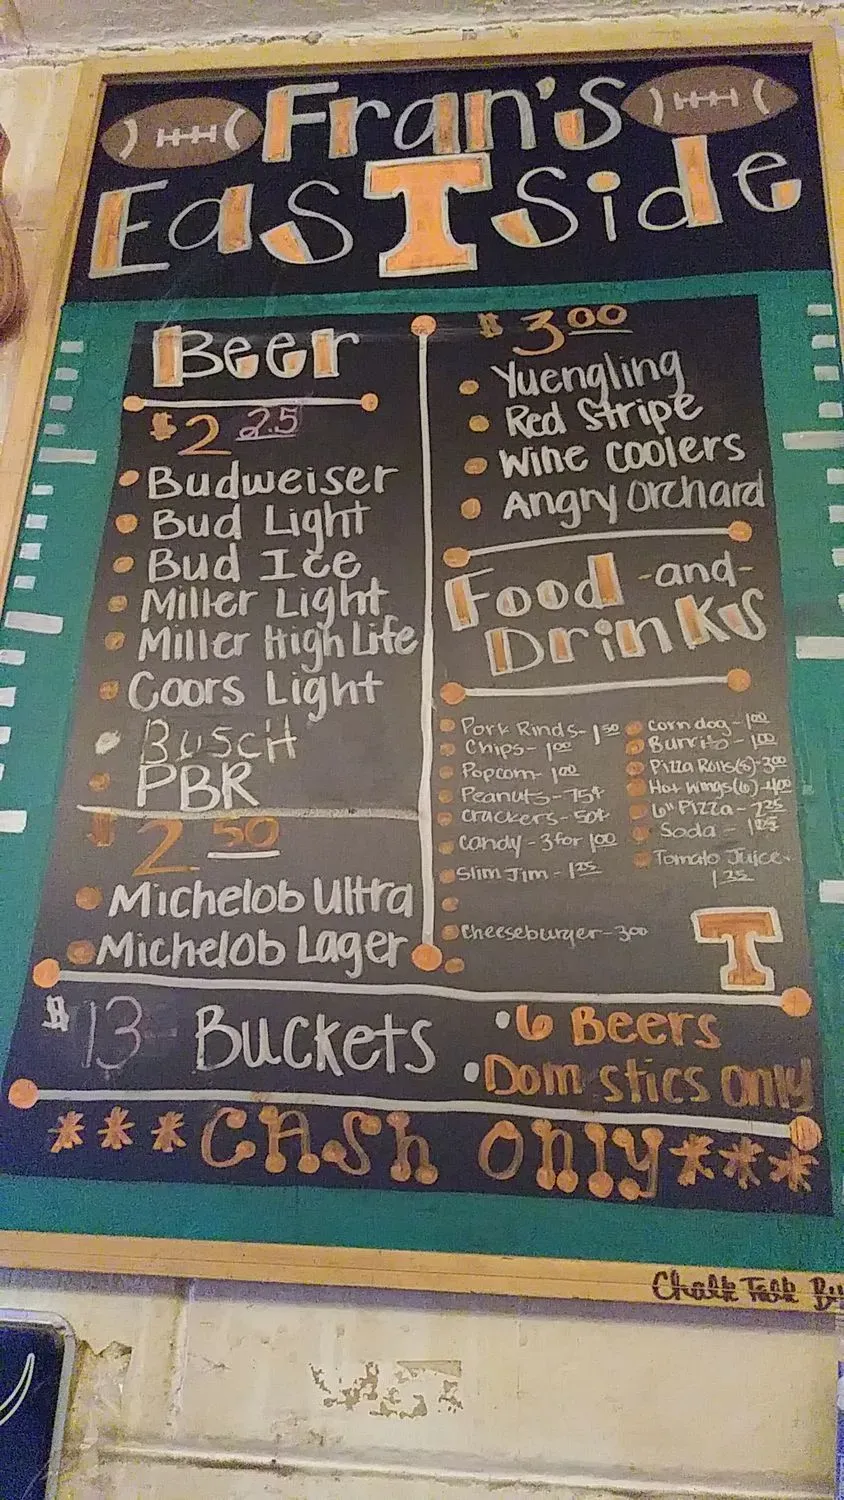 Fran's
EasTside
Beer
$2 25
Budweiser
Bud Light
Bud Ice
Miller Light
Miller High Life
Coors Light
Busch
PBR
$2 50
Michelob Ultra
Michelob Lager
$3 00
Yuengling
Red Stripe
Wine Coolers
Angry Orchard
Food -and-
Drinks
Pork Rinds- 1 50
Chips- 1 00
Popcorn- 1 00
Peanuts- 75¢
Crackers- 50¢
Candy - 3 for 1 00
Slim Jim - 1 25
Cheeseburger- 3 00
Corn dog - 1 00
Burrito - 1 00
Pizza Rolls(8)- 3 00
Hot Wings(6)- 4 00
6" Pizza - 7 25
Soda -
Tomato Juice-
1 25
T
$13 Buckets
• 6 Beers
• Dom stics only
***Cash only***
Chalk Talk By